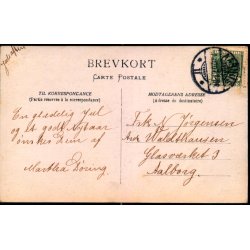 BREVKORT
CARTE POSTALE
TIL KORRESPONDANCE
(Partie réservée à la correspondance)
MODTAGERENS ADRESSE
(Adresse du destinataire)
En glædelig Jul
og et godt Nytaar
ønskes Dem af
Martha Döring
Frk N Jörgensen
Adr Waldthausen
Glasværket 3
Aalborg.